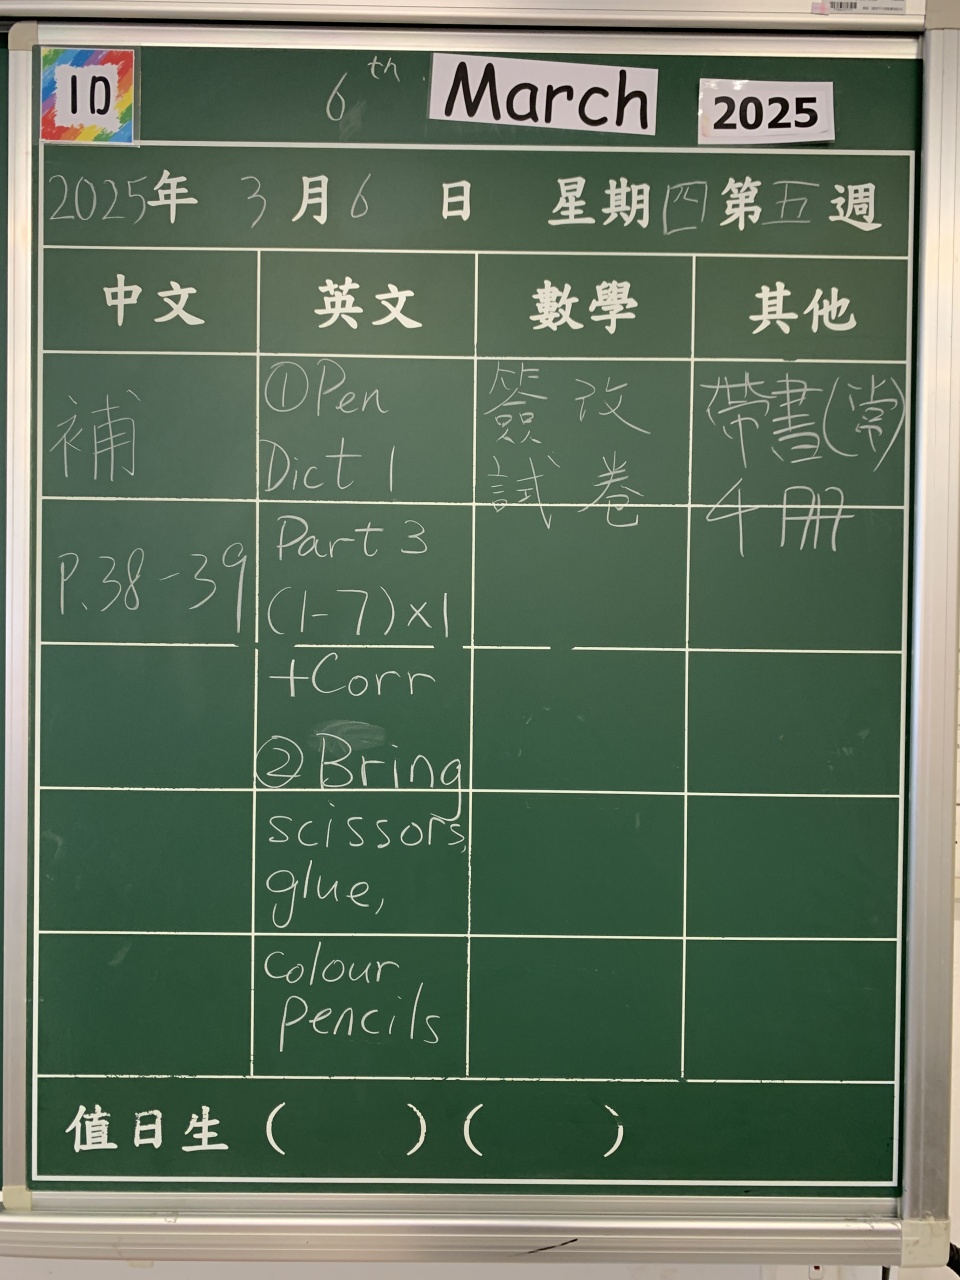 1D
6th March 2025
2025年 3月6日 星期四第五週
中文 英文 數學 其他
補
P.38-39
①Pen
Dict 1
Part 3
(1-7)×1
+Corr
②Bring
scissors,
glue,
colour
pencils
簽改
試卷
帶書(常)
4冊
值日生 ( ) ( )